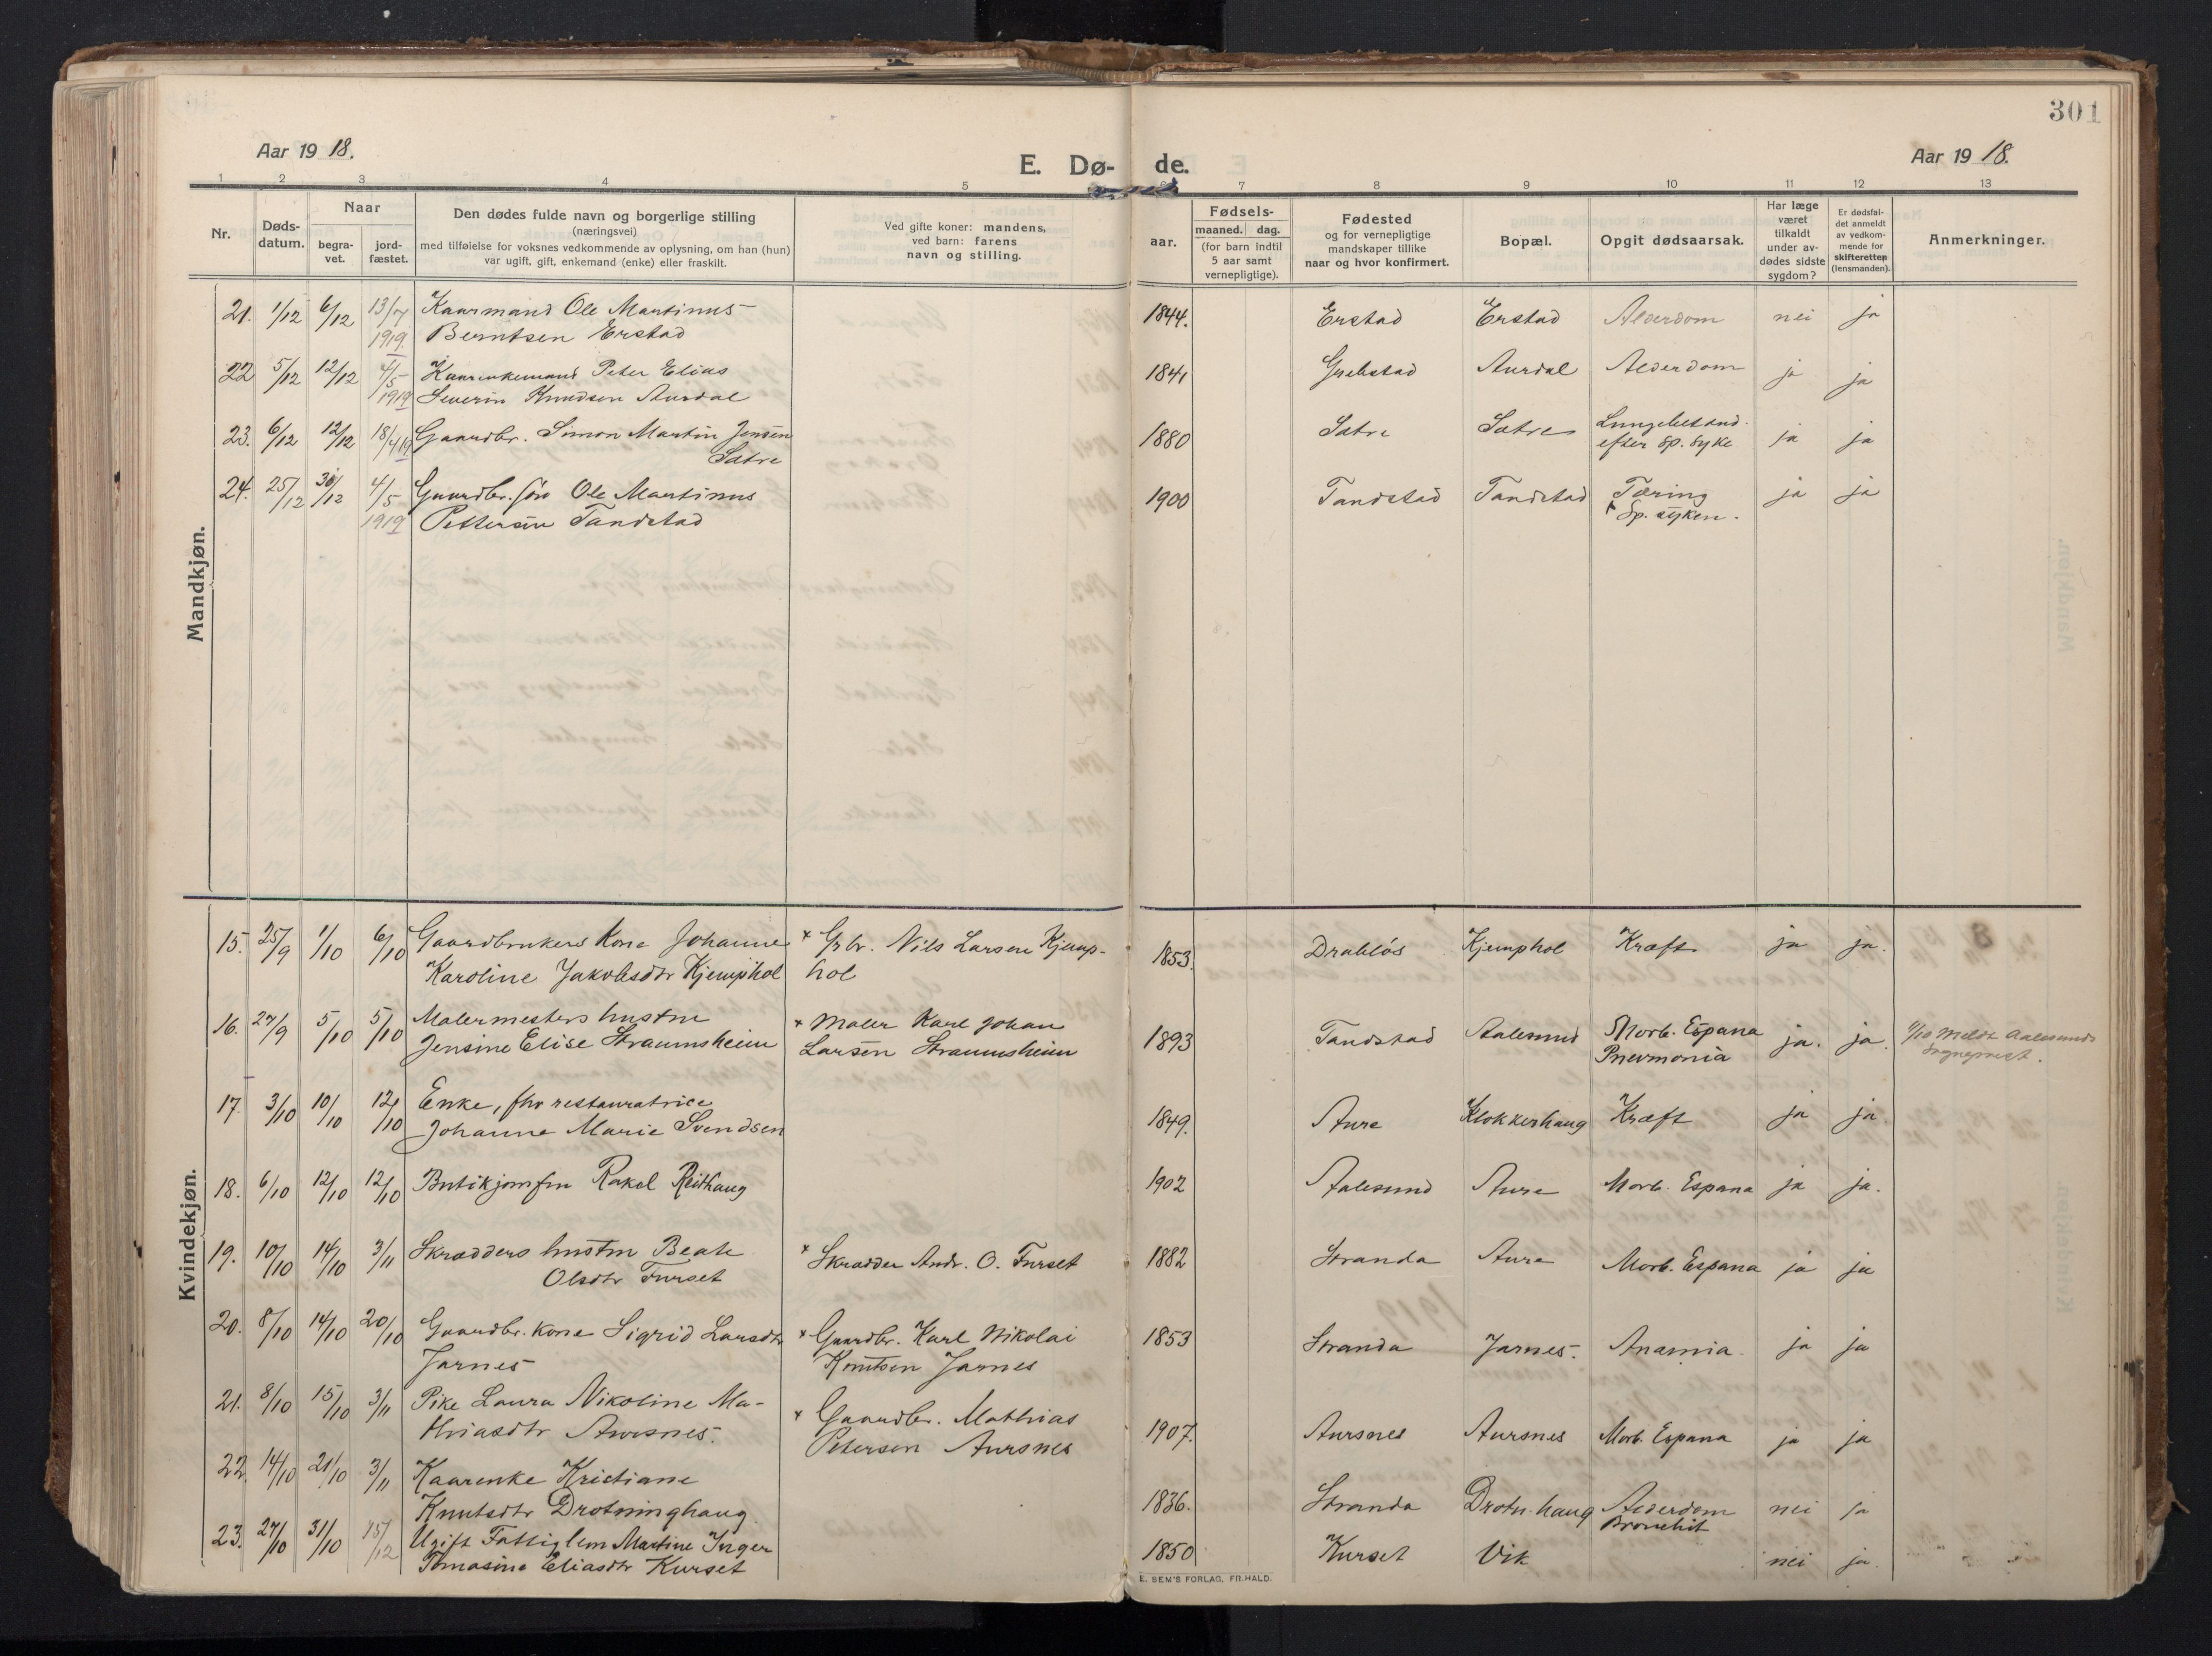 301
Aar 1918. E. Dø- de. Aar 1918.
1 2 3 4 5 7 8 9 10 11 12 13
Nr.
Døds-
datum.
Naar
begra-
vet.
jord-
fæstet.
Den dødes fulde navn og borgerlige stilling
(næringsvei)
med tilføielse for voksnes vedkommende av oplysning, om han (hun)
var ugift, gift, enkemand (enke) eller fraskilt.
Ved gifte koner: mandens,
ved barn: farens
navn og stilling.
aar.
Fødsels-
maaned. dag.
(for barn indtil
5 aar samt
vernepligtige).
Fødested
og for vernepligtige
mandskaper tillike
naar og hvor konfirmert.
Bopæl.
Opgit dødsaarsak.
Har læge
været
tilkaldt
under av-
dødes sidste
sygdom?
Er dødsfal-
det anmeldt
av vedkom-
mende for
skifteretten
(lensmanden).
Anmerkninger.
Mandkjøn.
21. 1/12 6/12 13/7 Kaarmand Ole Martinus 1844. Erstad Erstad Alderdom nei ja
1919. Berntsen Erstad
22 5/12 12/12 4/5 Kaarenkemand Peter Elias 1841 Grebstad Aurdal Alderdom ja ja
1919 Severin Knudsen Aurdal
23. 6/12 12/12 18/4 19 Gaardbr. Simon Martin Jensen 1880 Satre Satre Lungebetænd. ja ja
Satre efter sp. syke
24. 25/12 30/12 4/5 Gaardbr. søn Ole Martinus 1900 Tandstad Tandstad Tæring ja ja
1919 Pettersen Tandstad Sp. syken.
Kvindekjøn.
15. 25/9 1/10 6/10 Gaardbrukers kone Johanne * Grbr. Nils Larsen Kjemp- 1853. Drabløs Kjemphol Kræft ja ja. 8
Karoline Jakobsdtr Kjemphol hol
16. 27/9 5/10 5/10 Malermesters hustru * Maler Karl Johan 1893 Tandstad Aalesund Morb. Espana ja. ja. 9/10 meldt Aalesunds
Jensine Elise Straumsheim Larsen Straumsheim Pnevmonia Sogneprest.
17. 3/10 10/10 12/10 Enke, fhv restauratrice 1849. Aure Klokkerhaug Kræft ja ja.
Johanne Marie Svendsen
18. 6/10 12/10 12/10 Butikjomfru Rakel Reithaug 1902 Aalesund Aure Morb. Espana ja ja.
19. 10/10 14/10 3/11 Skrædders hustru Beate * Skrædder Andr. O. Furset 1882 Stranda Aure Morb. Espana ja ja
Olsdtr Furset
20. 8/10 14/10 20/10 Gaardbr. kone Sigrid Larsdtr * Gaardbr. Karl Nikolai 1853 Stranda Jarnes. Anæmia ja ja
Jarnes Knutsen Jarnes
21. 8/10 15/10 3/11 Pike Laura Nikoline Ma- * Gaardbr. Mathias 1907. Aursnes Aursnes Morb. Espana ja ja
thiasdtr Aursnes. Petersen Aursnes
22. 14/10 21/10 3/11 Kaarenke Kristiane 1836. Stranda Drotn. haug Alderdom nei ja
Knutsdtr Drotninghaug Bronchit
23. 27/10 31/10 15/12 Ugift Fattiglem Martine Inger 1850 Kurset Vik nei ja.
Tomasine Eliasdtr Kurset
E. SEM'S FORLAG, FR.HALD.